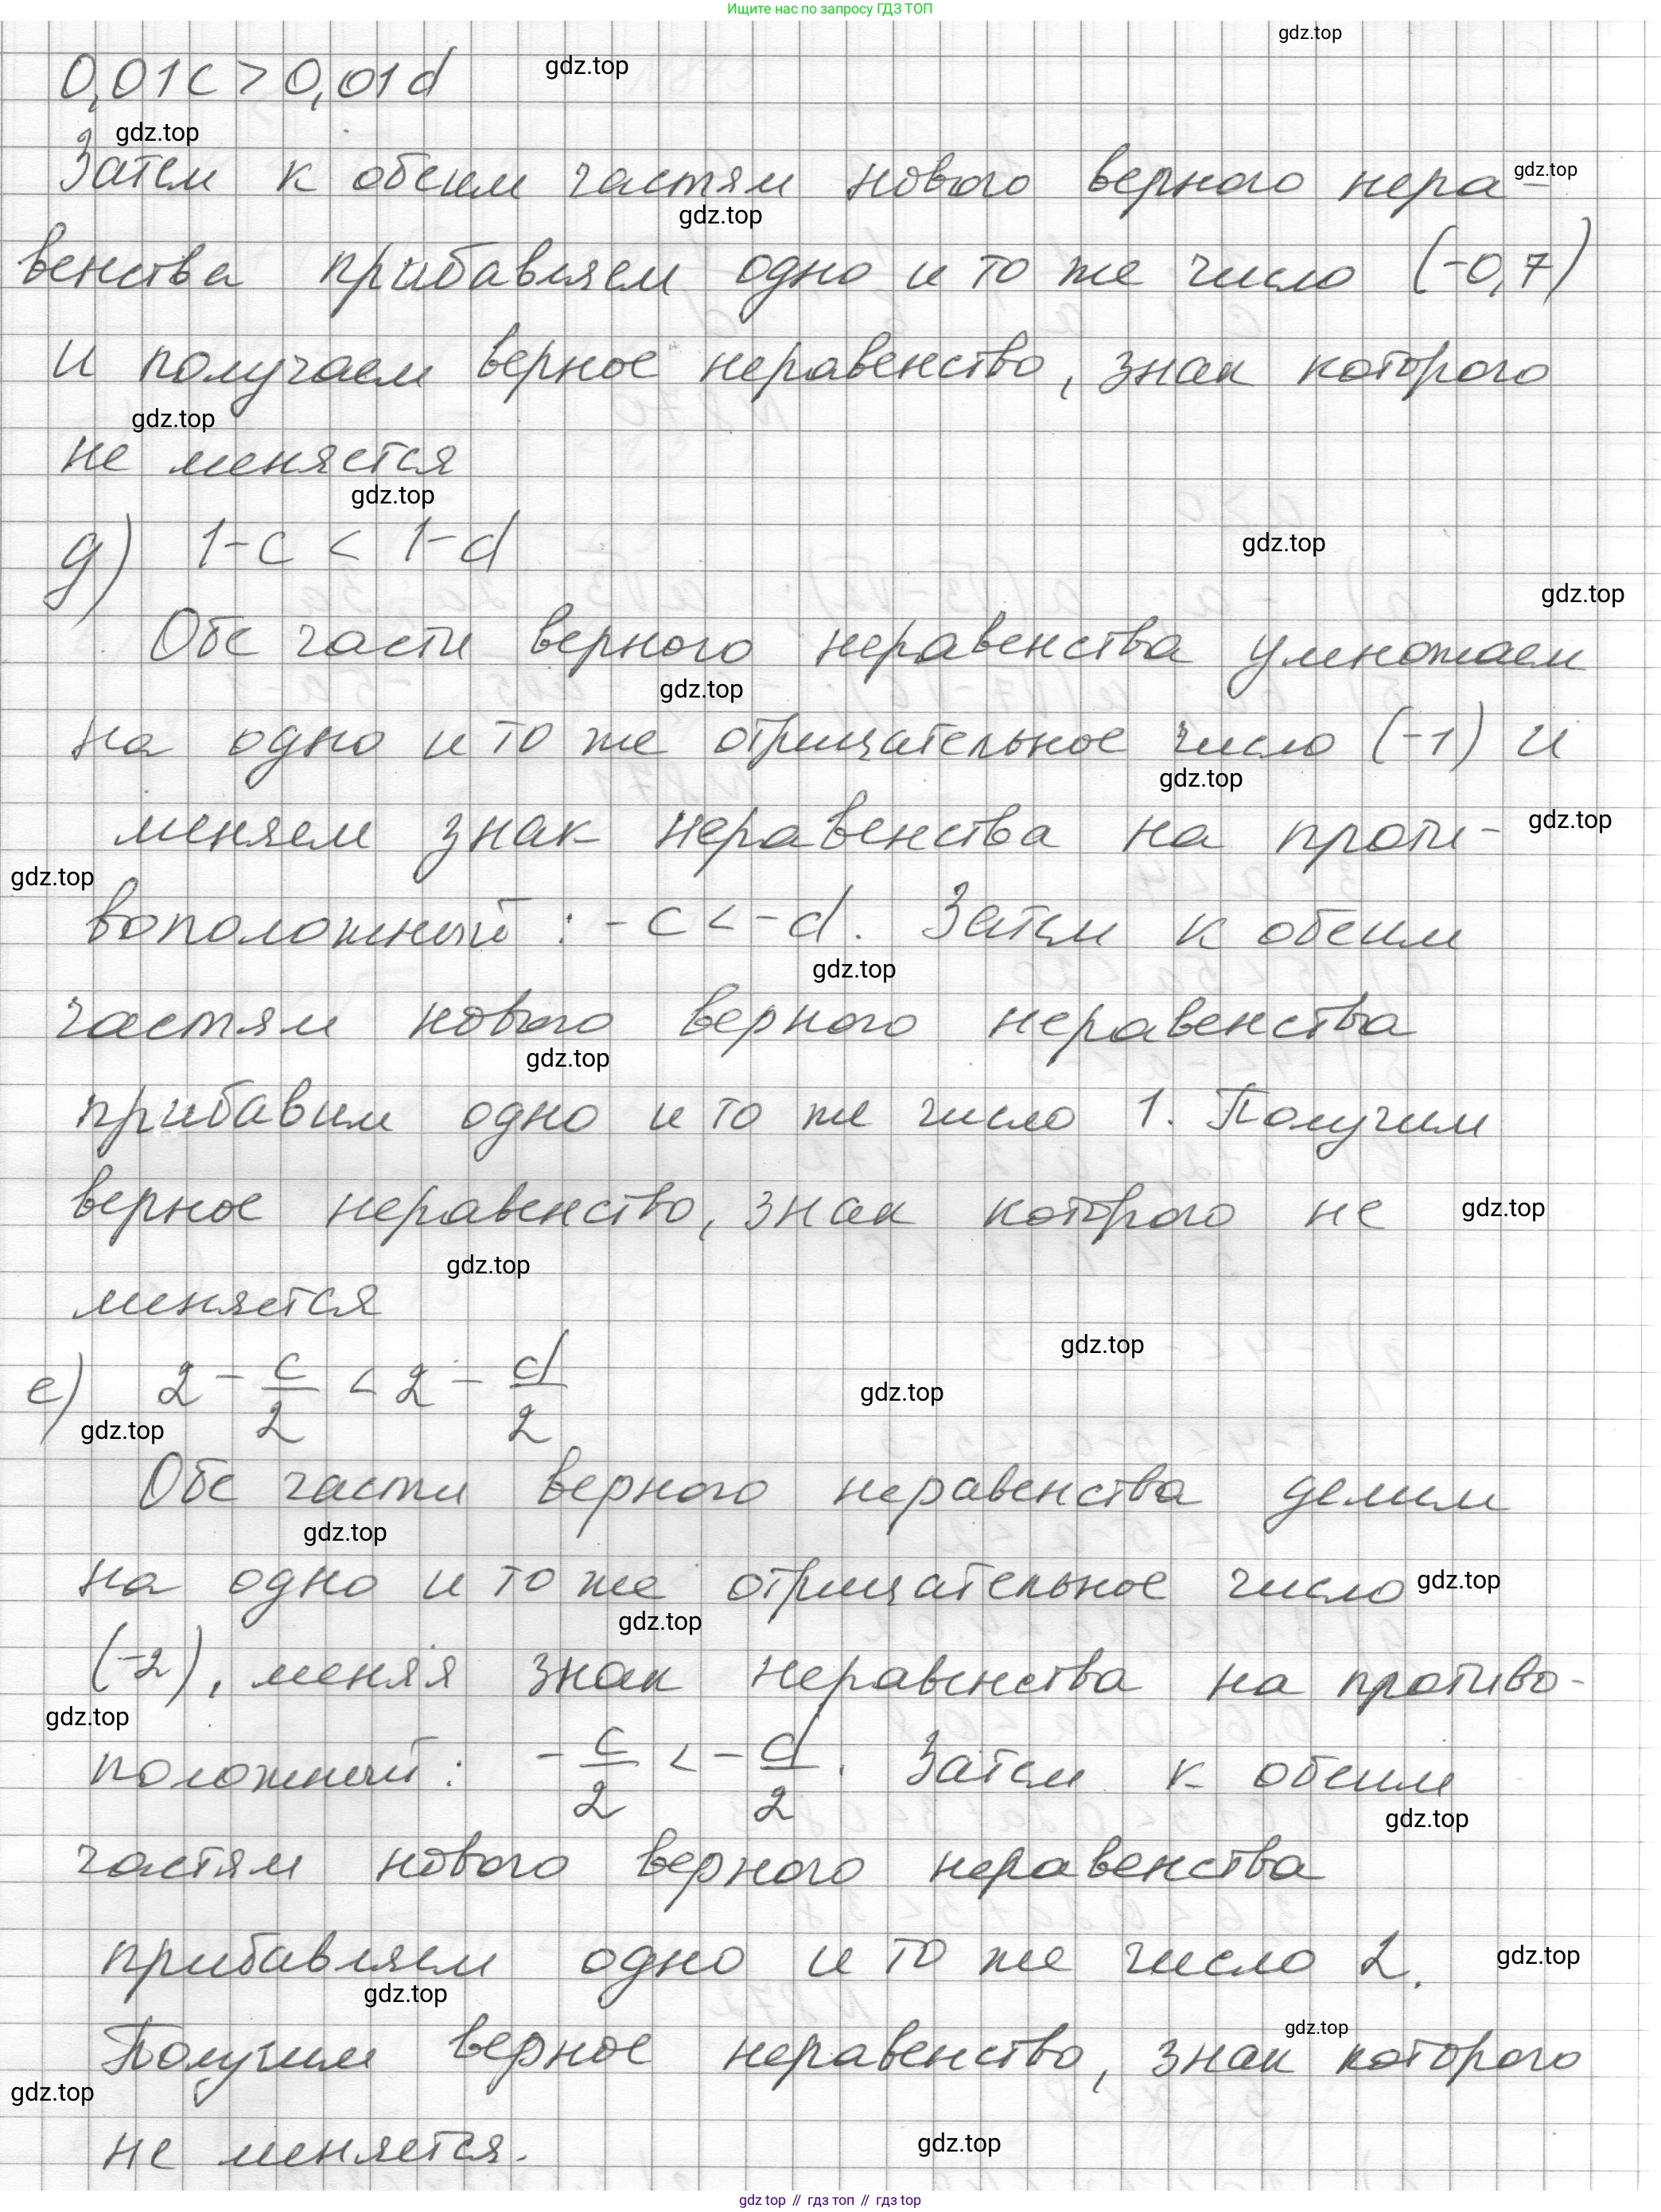 Ищите нас по запросу ГДЗ ТОП
gdz.top
0,01c > 0,01d
gdz.top
gdz.top
Затем к обеим частям нового верного нера-
gdz.top
gdz.top
венства прибавляем одно и то же число (-0,7)
и получаем верное неравенство, знак которого
gdz.top
не меняется
gdz.top
д) 1-c < 1-d
gdz.top
gdz.top
Обе части верного неравенства умножаем
gdz.top
на одно и то же отрицательное число (-1) и
gdz.top
меняем знак неравенства на проти-
gdz.top
gdz.top
воположный: -c < -d. Затем к обеим
gdz.top
частям нового верного неравенства
gdz.top
прибавим одно и то же число 1. Получим
верное неравенство, знак которого не
gdz.top
gdz.top
меняется
gdz.top
е) 2 - c/2 < 2 - d/2
gdz.top
gdz.top
Обе части верного неравенства делим
gdz.top
на одно и то же отрицательное число
gdz.top
gdz.top
(-2), меняя знак неравенства на противо-
gdz.top
положный: -c/2 < -d/2. Затем к обеим
gdz.top
частям нового верного неравенства
прибавляем одно и то же число 2.
gdz.top
gdz.top
Получим верное неравенство, знак которого
gdz.top
gdz.top
не меняется.
gdz.top
gdz top // гдз топ // gdz top